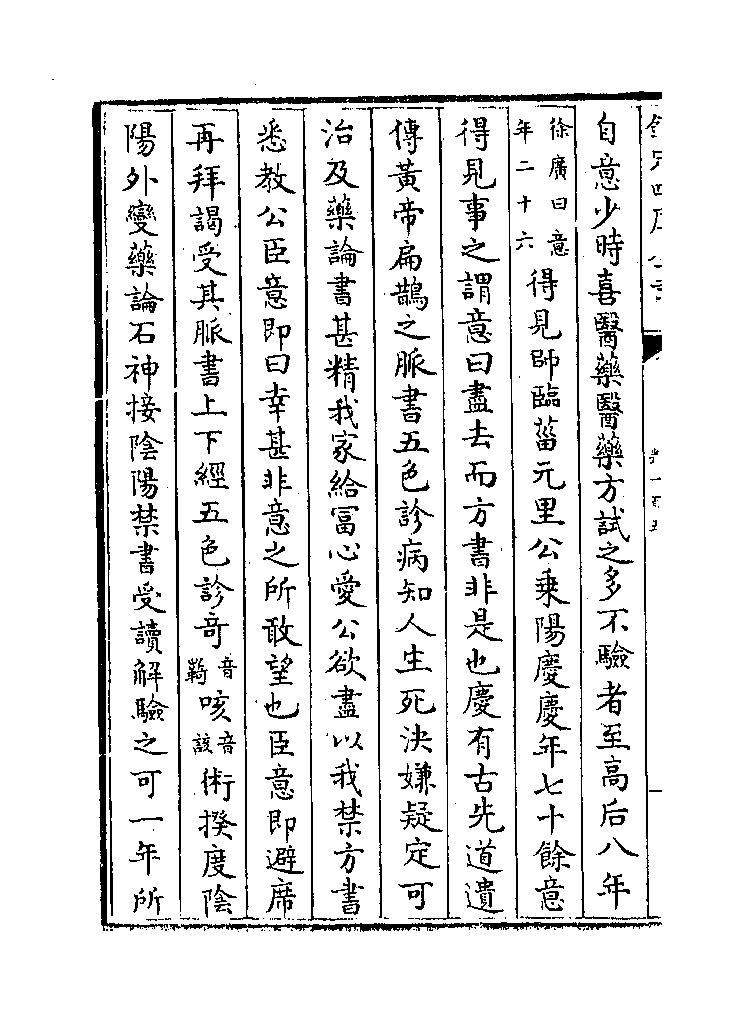 自意少時喜醫藥醫藥方試之多不驗者至高后八年
徐廣曰意年二十六得見師臨菑元里公乗陽慶慶年七十餘意
得見事之謂意曰盡去而方書非是也慶有古先道遺
傳黃帝扁鵲之脈書五色診病知人生死決嫌疑定可
治及藥論書甚精我家給冨心愛公欲盡以我禁方書
悉教公臣意即曰幸甚非意之所敢望也臣意即避席
再拜謁受其脈書上下經五色診竒音羇咳音該術揆度陰
陽外變藥論石神接陰陽禁書受讀解驗之可一年所